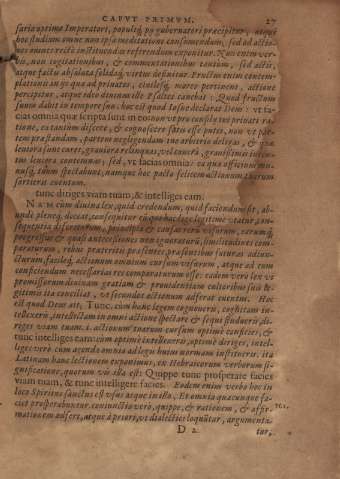 CAPVT PRIMVM. 27
sariæ optimo Imperatori, populiq́; pŷ gubernatori præcipitur, atque
hoc studium omne non ipsa meditatione consummendum, sed ad actio-
nes numeri rectè instituendas referendum exponitur. Non enim ver-
bis, non cogitationibus, & commentationibus tantùm, sed actis,
atque factis absoluta solidaq́; virtus definitur. Fructus enim contem-
plationis
percipitur, atque ideo diuinus ille Psaltes canebat: Quod fructum
suum dabit in tempore suo: hoc est quod Iosue declarat Deus: vt fa-
cias omnia quæ scripta sunt in eo: non vt pro consilij tui priuati ra-
tione, ea tantùm discere, & cognoscere satis esse putes, non vt par-
tem præstandam, partem negligendam tuo arbitrio deligas, & quæ
leuiora sunt cures, grauiora relinquas, vel contrà, grauissimis intentus
leuiora contemnas, sed, vt facias omnia: ea quæ officium mu-
nusq́; tuum spectabunt, namque hoc pacto felicem actionum tuarum
sortieris euentum.
tunc diriges viam tuam, & intelliges eam.
NAM cùm diuina lex, quid credendum, quid faciendum sit, ab-
unde pleneq́; doceat, consequitur
sequentia disserat rerum, principia & causas rerum visurum, earumq́;
progressus & quasi antecessiones non ignoraturũ, similitudines com-
paraturum, rebus præteritis præsentes, præsentibus futuras adiun-
cturum, facileq́; actionum omnium cursum visurum, atque ad eam
conficiendum necessarias res comparaturum esse: eadem verò lex vt
promissorum diuinam gratiam & prouidentiam cultoribus suis le-
gitimis ita conciliat, vt secundos actionum adferat euentus. Hoc
est quod Deus ait; Tunc, cùm hanc legem cognoueris, cogitatam in-
tellexeris, intellectam in omni actione spectare & sequi studueris, di-
riges viam tuam. i. actionum tuarum cursum optimè confices, &
tunc intelliges eam: cùm optimè intellexeris, optimè diriges, intel-
liges verò cùm agenda omnia ad legis huius normam institueris. ita
Latinam hanc lectionem exponimus, ex Hebraicorum verborum si-
gnificatione, quorum vis ista est: Quippe tunc prosperare facies
viam tuam, & tunc intelligere facies. Eodem enim verbo hoc in
loco Spiritus sanctus est vsus atque in illo, Et omnia quæcunque fa-
ciet prosperabuntur. coniunctio verò, quippe, & rationem, & affir-
mationem adfert, atque à priori, vt dialectice loquâtur, argumenta-
D 2 tur,